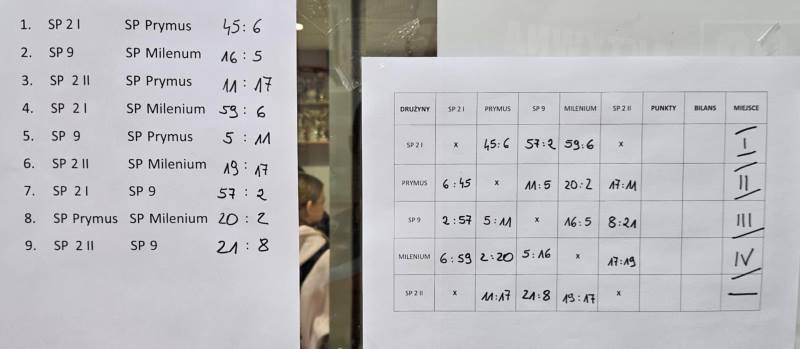 1. SP 2 I SP Prymus 45:6
2. SP 9 SP Milenum 16:5
3. SP 2 II SP Prymus 11:17
4. SP 2 I SP Milenium 59:6
5. SP 9 SP Prymus 5:11
6. SP 2 II SP Milenium 19:17
7. SP 2 I SP 9 57:2
8. SP Prymus SP Milenium 20:2
9. SP 2 II SP 9 21:8
DRUŻYNY SP 2 I PRYMUS SP 9 MILENIUM SP 2 II PUNKTY BILANS MIEJSCE
SP 2 I x 45:6 57:2 59:6 x I
PRYMUS 6:45 x 11:5 20:2 17:11 II
SP 9 2:57 5:11 x 16:5 8:21 III
MILENIUM 6:59 2:20 5:16 x 17:19 IV
SP 2 II x 11:17 21:8 19:17 x —